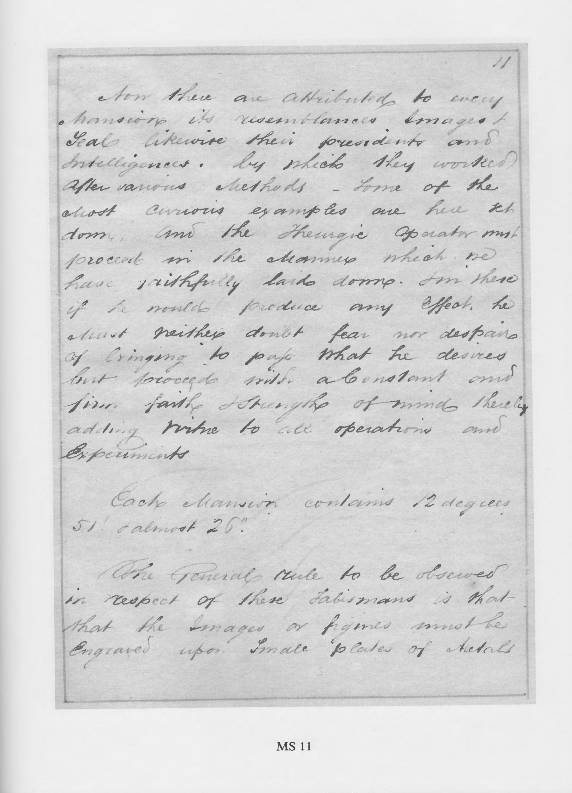 11
Now there are attributed to every
Mansion its resemblances Images &
Seals likewise their presidents and
Intelligences. by which they worked
After various Methods - Some of the
Most Curious examples are here set
down. and the Theurgic Operator must
proceed in the Manner which we
have faithfully laid down. in these
if he would produce any Effect. he
Must neither doubt fear nor despair
of bringing to pass What he desires
but proceed with a Constant and
firm faith & Strength of mind thereby
adding Virtue to all operations and
Experiments
Each Mansion contains 12 degrees
51' & almost 26".
The General rule to be observed
in respect of these Talismans is that
that the Images or figures must be
Engraved upon Small plates of Metals
MS 11